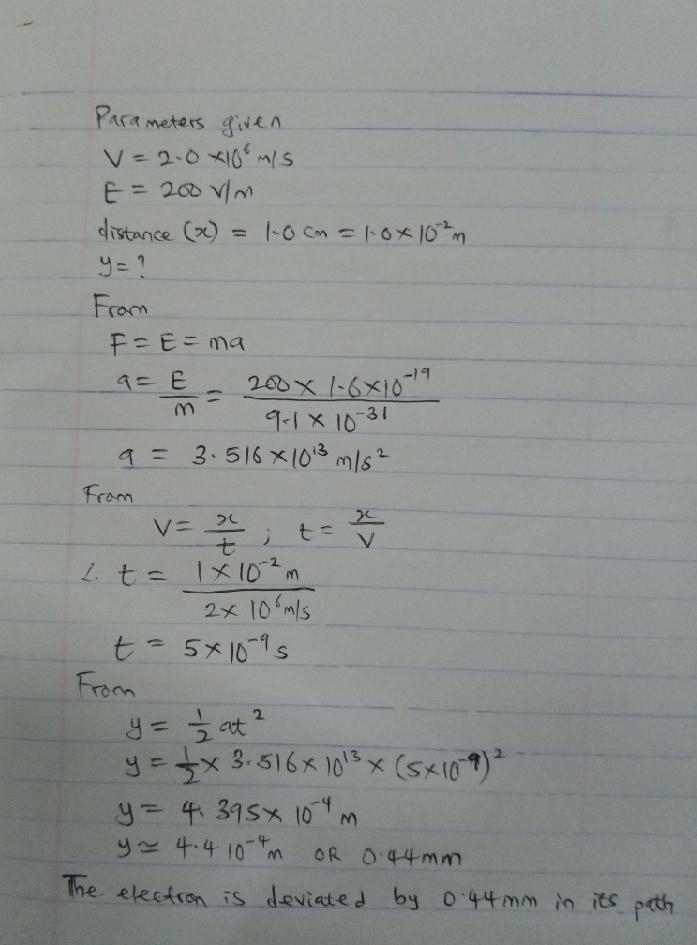 Parameters given
V = 2.0 ×10⁶ m/s
E = 200 V/m
distance (x) = 1.0 cm = 1.0 × 10⁻² m
y = ?
From
F = E = ma
a = E/m = 200 × 1.6×10⁻¹⁹ / 9.1 × 10⁻³¹
a = 3.516 ×10¹³ m/s²
From
V = x/t ; t = x/V
∴ t = 1 × 10⁻² m / 2× 10⁶ m/s
t = 5×10⁻⁹ s
From
y = ½ at²
y = ½ × 3.516 × 10¹³ × (5×10⁻⁹)²
y = 4.395× 10⁻⁴ m
y ≃ 4.4 10⁻⁴ m OR 0.44mm
The electron is deviated by 0.44mm in its path